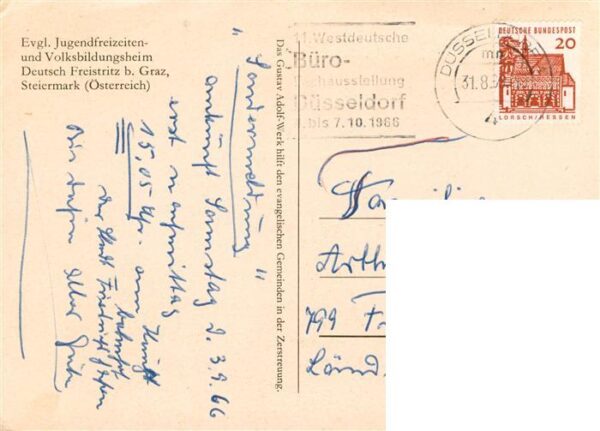 Evgl. Jugendfreizeiten-
und Volksbildungsheim
Deutsch Freistritz b. Graz,
Steiermark (Österreich)
" Sondermeldung "
Ankunft Samstag d. 3.9.66
erst nachmittag
15,05 Uhr. am
Bahnhof
der Stadt Friedrichshafen
Alles Gute
Das Gustav Adolf-Werk hilft den evangelischen Gemeinden in der Zerstreuung.
11. Westdeutsche
Büro-
Fachausstellung
Düsseldorf
bis 7.10.1966
DÜSSELDORF
mn
31.8.
4
DEUTSCHE BUNDESPOST
20
LORSCH/HESSEN
Familie
Arth
799 F
Länd